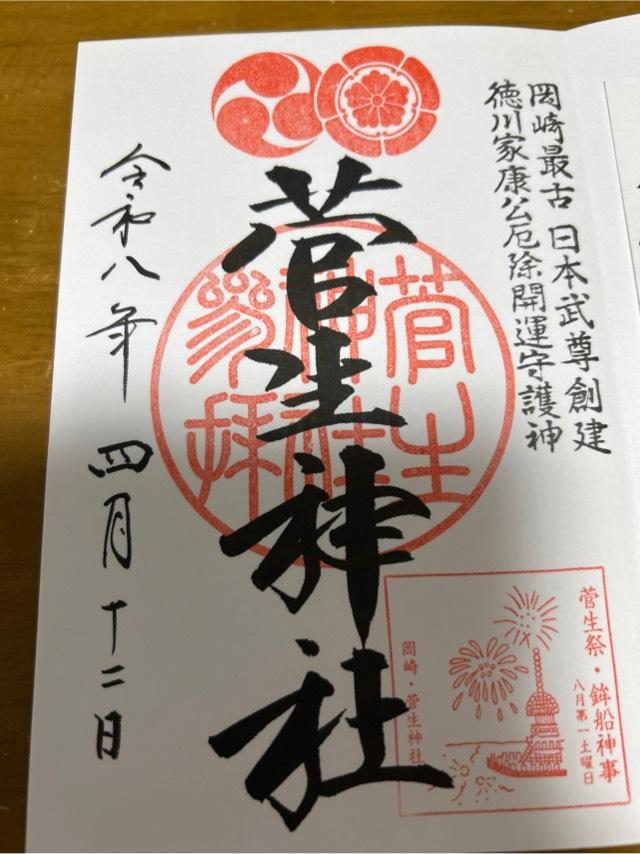 岡崎最古 日本武尊創建
徳川家康公厄除開運守護神
菅生神社
菅生
神社
参拝
令和八年 四月十二日
菅生祭・鉾船神事
八月第一土曜日
岡崎・菅生神社